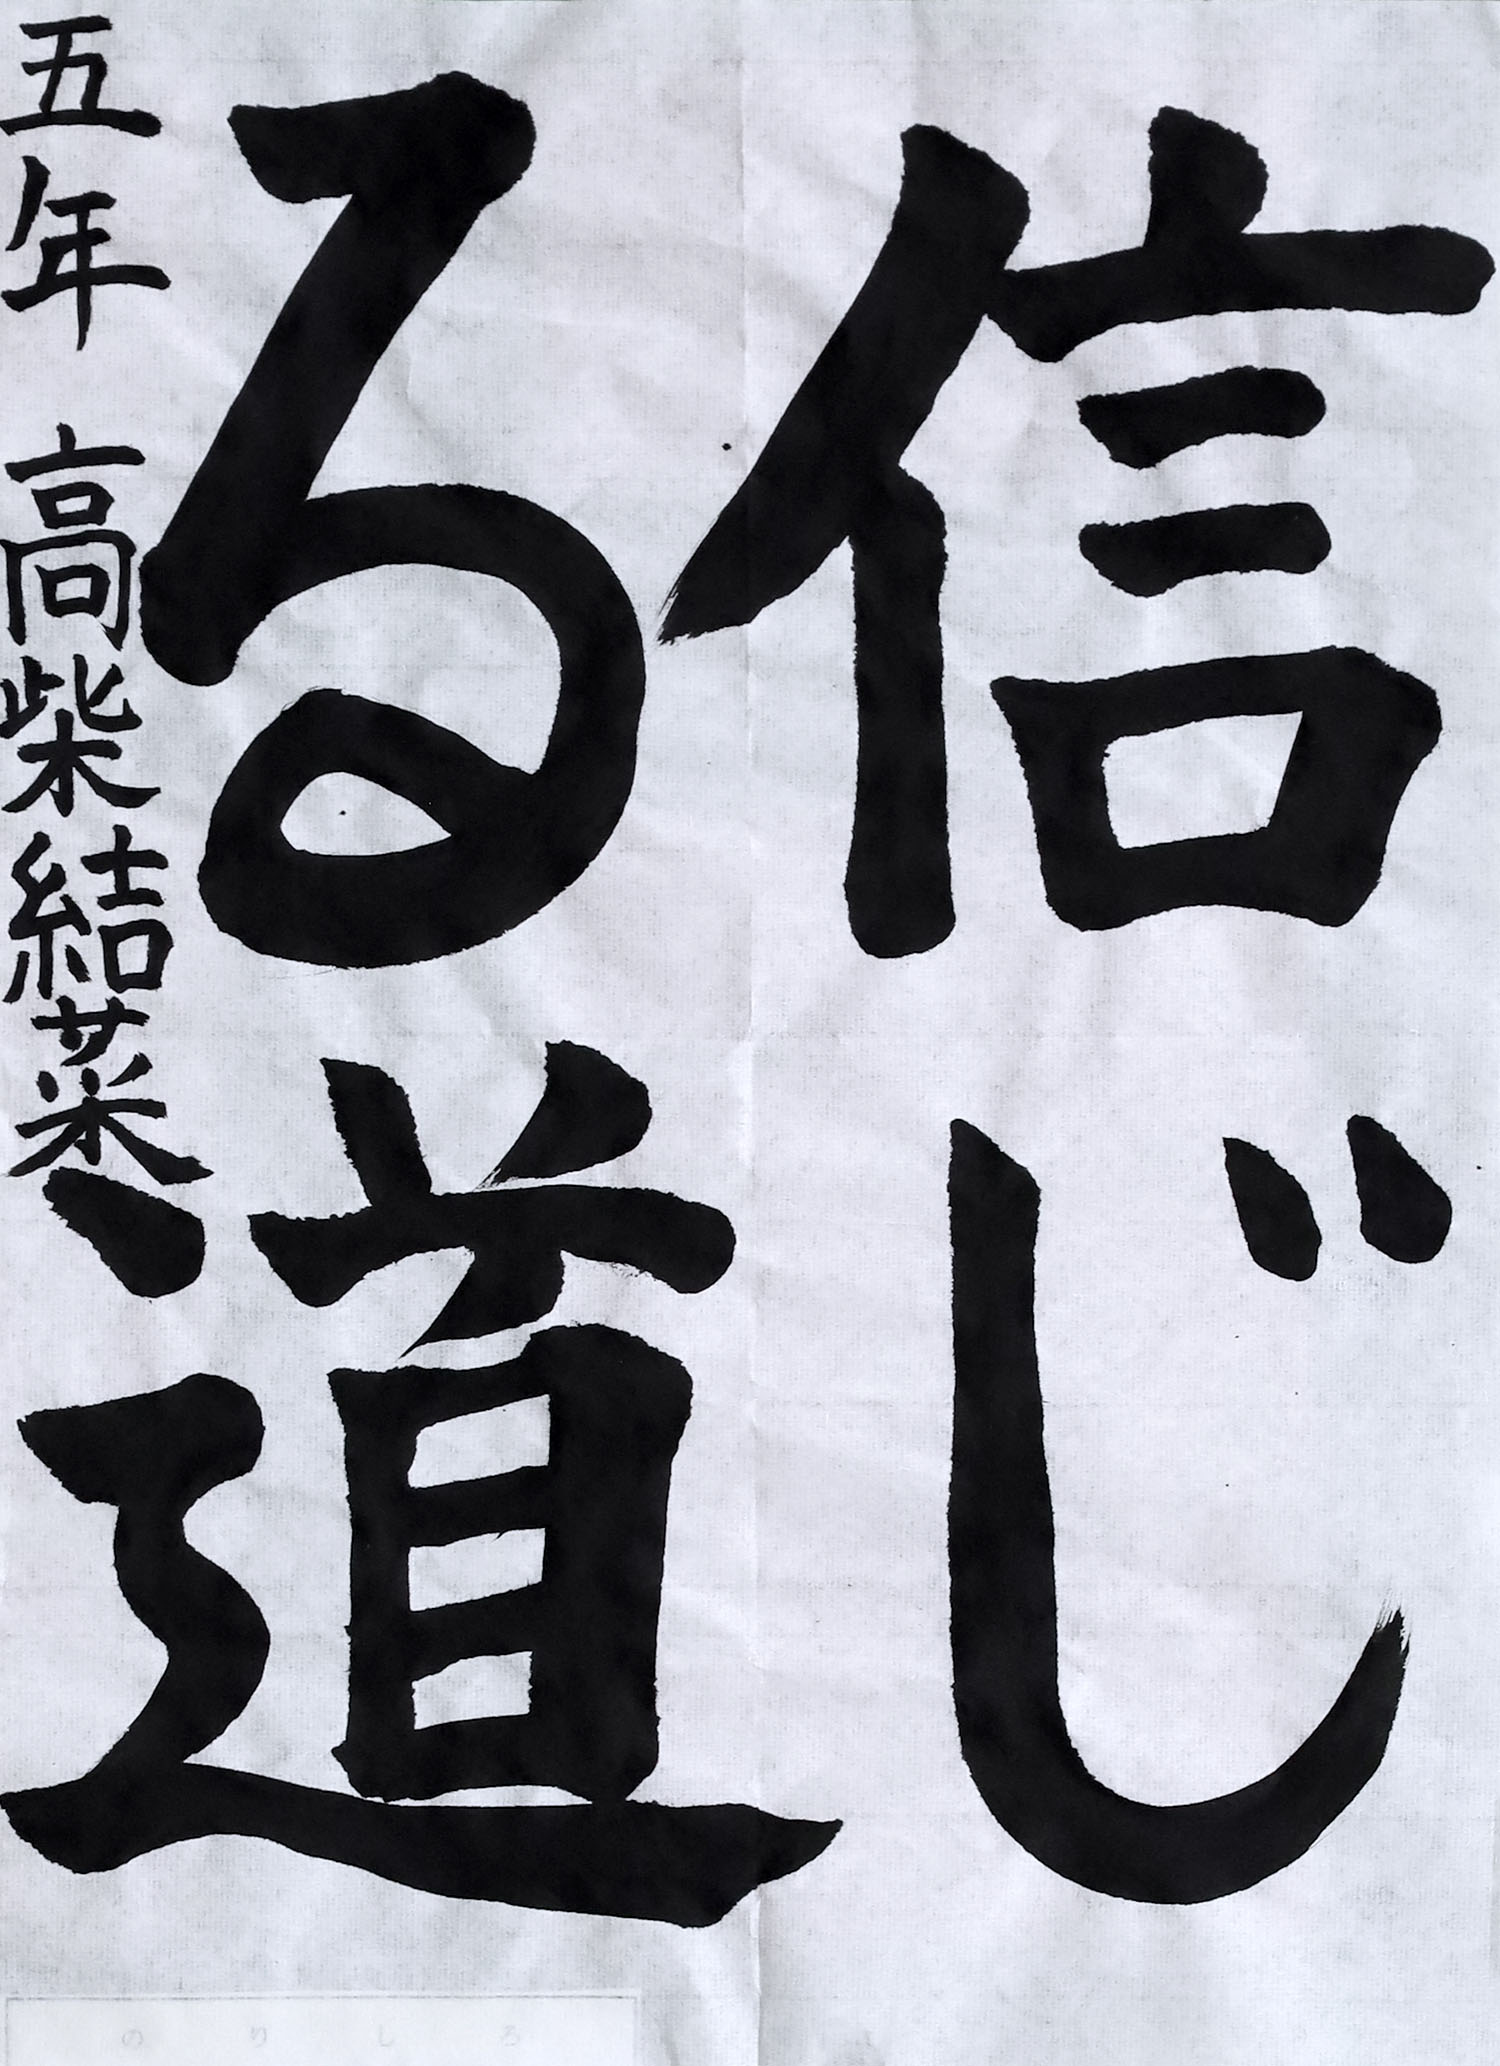 信じ
る道
五年 高柴結菜
のりしろ